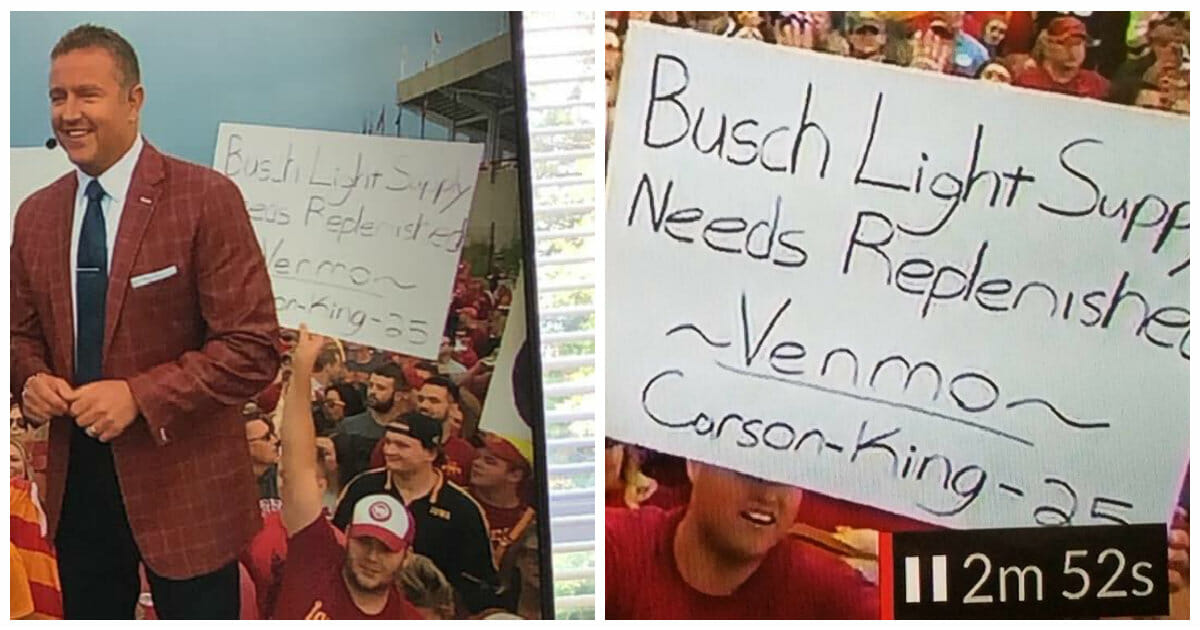 Busch Light Supply
eeds Replenished
Venmo~
on-King-25
Busch Light Supply
Needs Replenished
~Venmo~
Carson-King-25
2m 52s